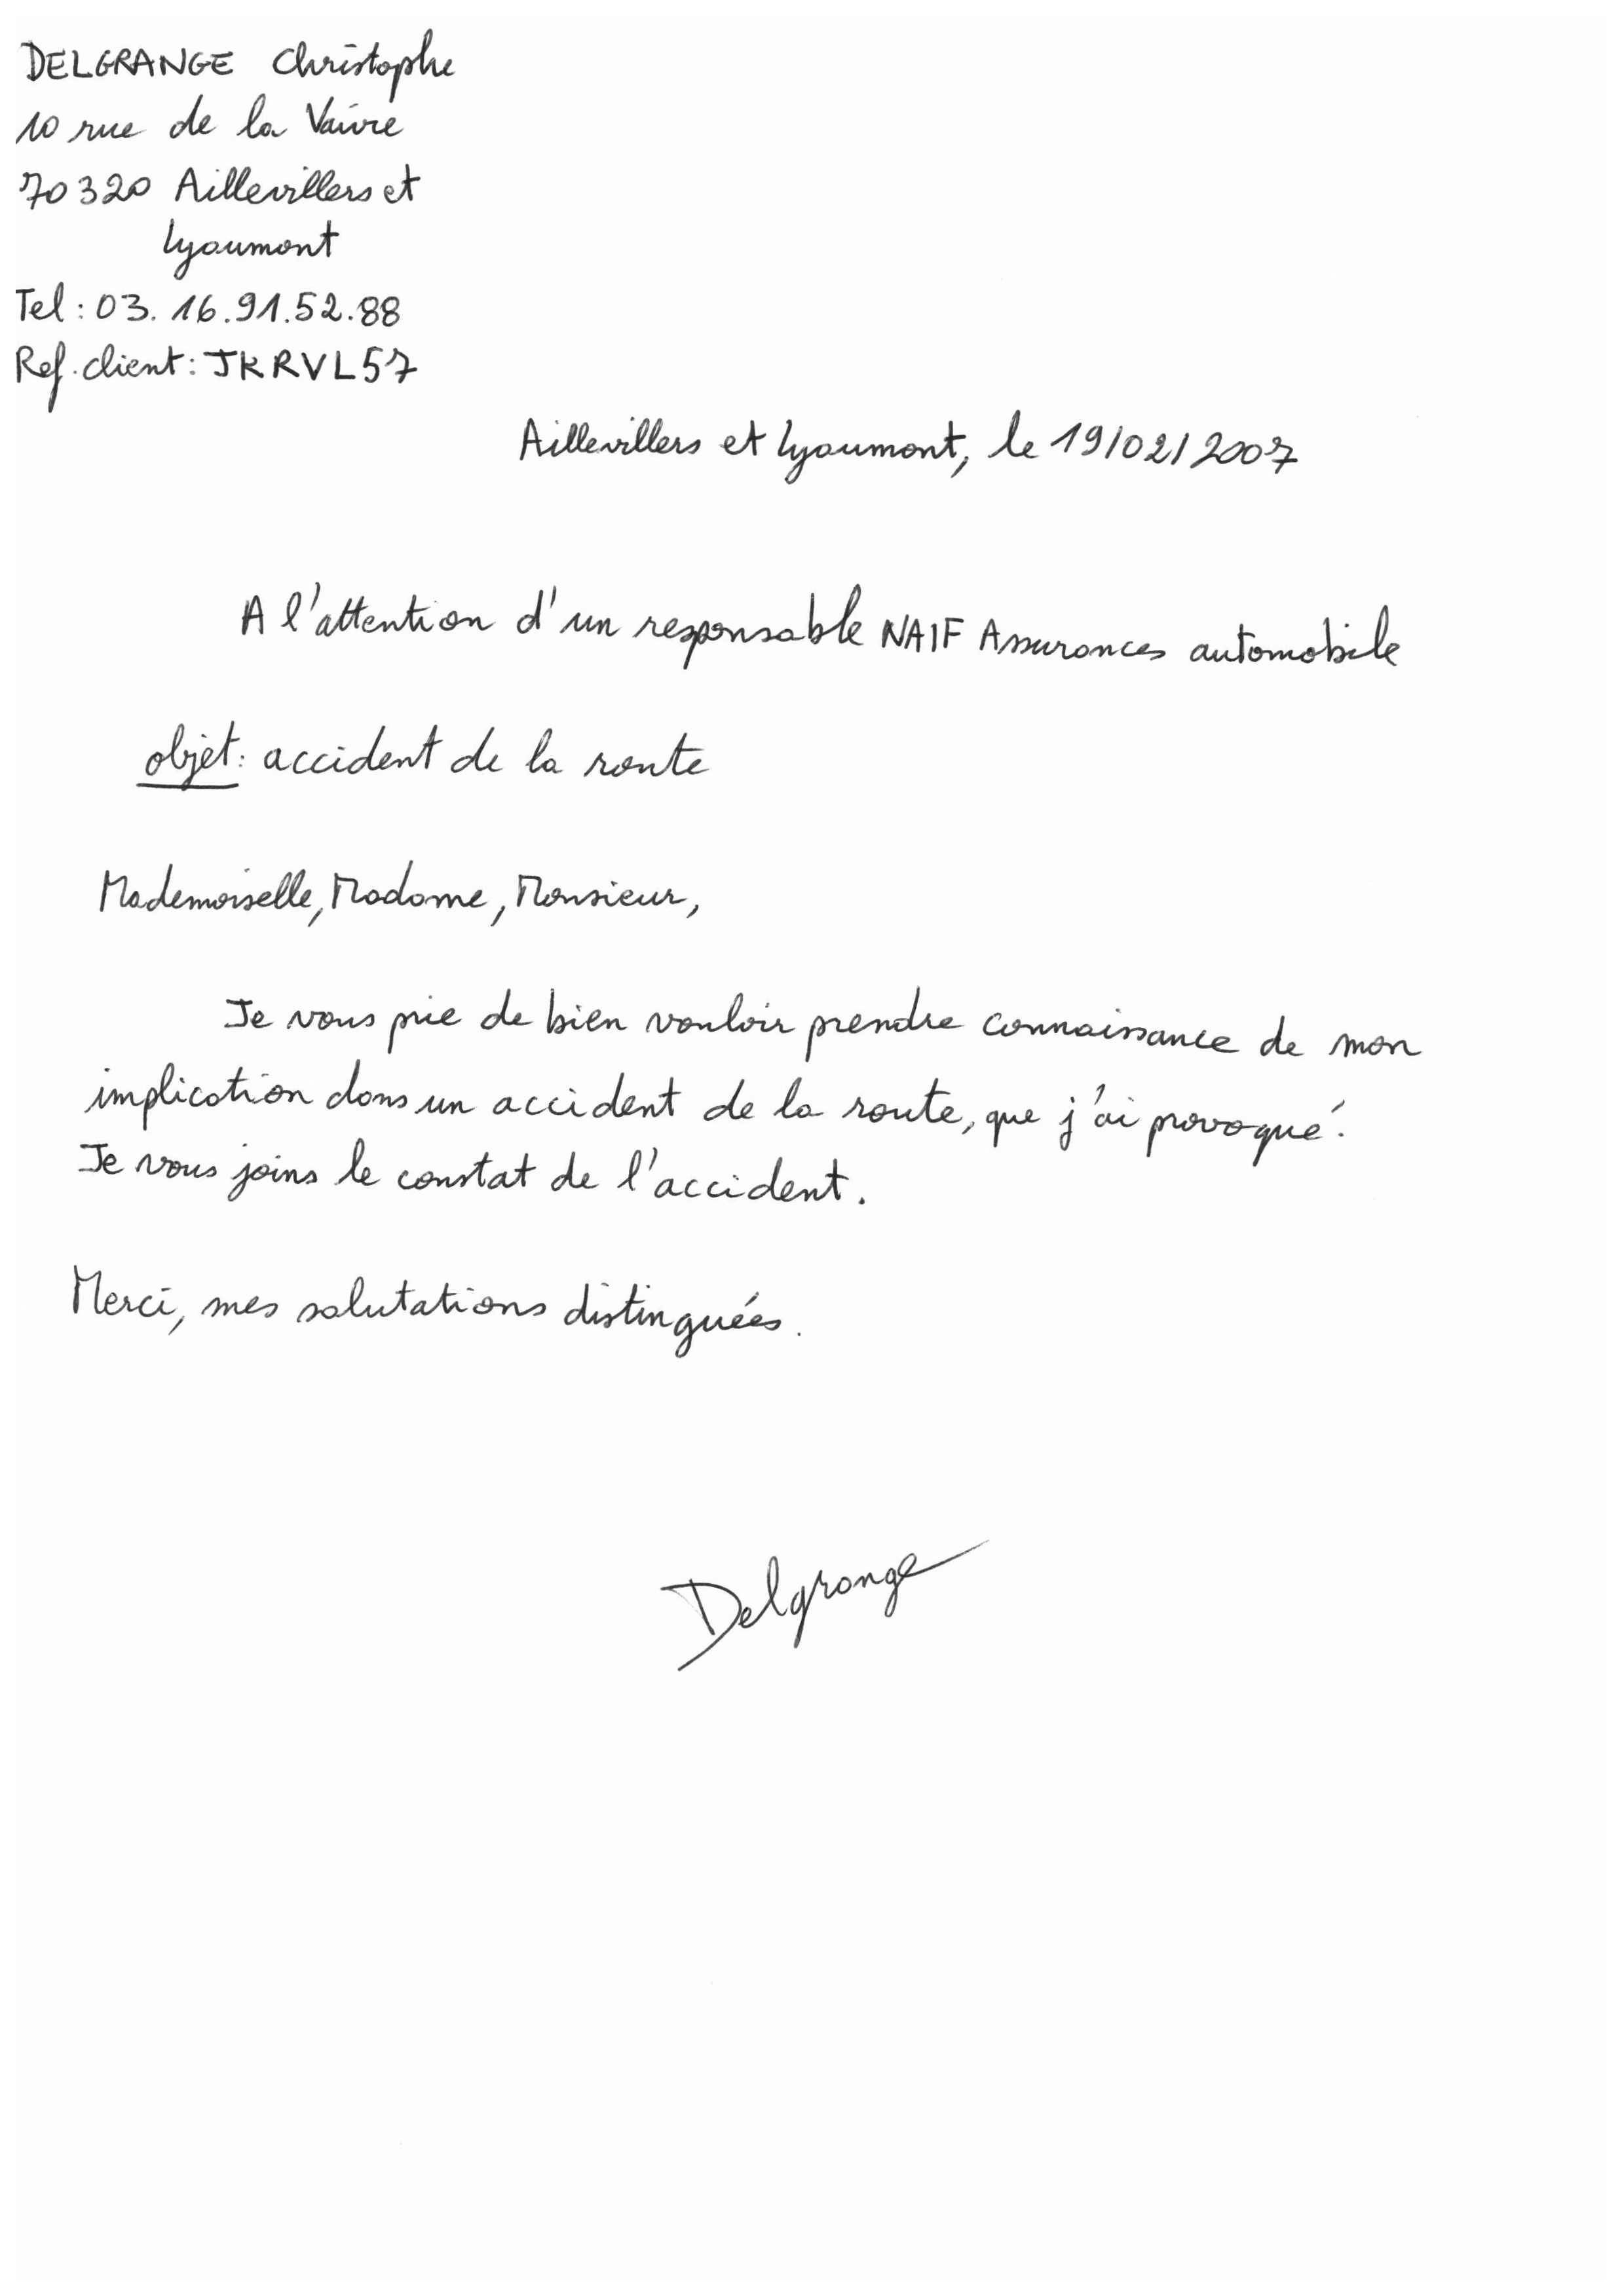 DELGRANGE Christophe
10 rue de la Vaivre
70320 Aillevillers et
Lyaumont
Tel : 03.16.91.52.88
Ref. client : JKRVL57
Aillevillers et Lyaumont, le 19/02/2007
A l'attention d'un responsable NAIF Assurances automobile
objet : accident de la route
Mademoiselle, Madame, Monsieur,
Je vous prie de bien vouloir prendre connaissance de mon
implication dans un accident de la route, que j'ai provoqué.
Je vous joins le constat de l'accident.
Merci, mes salutations distinguées.
Delgrange